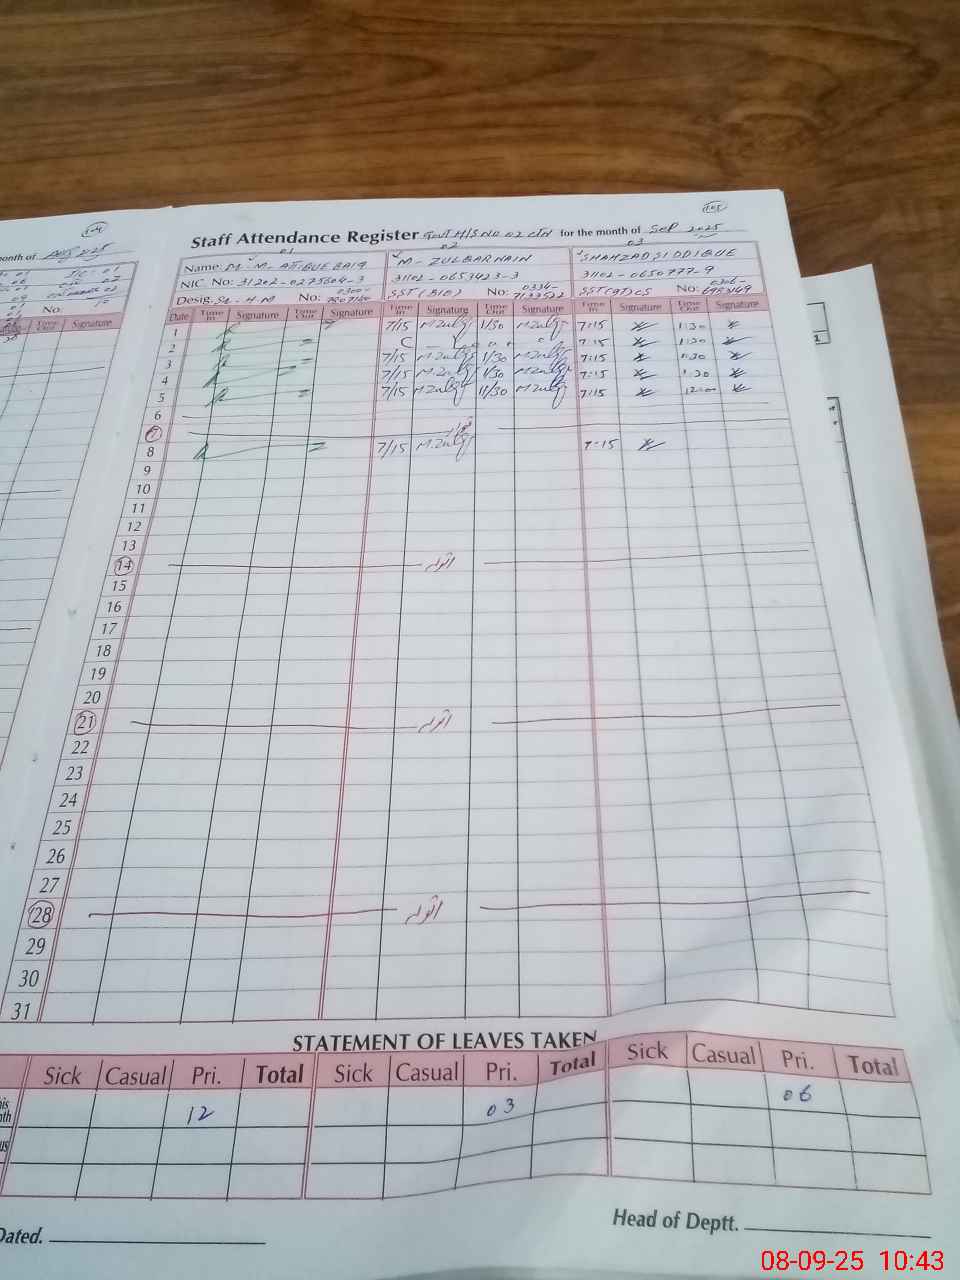 105
Staff Attendance Register Govt H/S No 02 CTN for the month of Sep 2025
01 02 03
Name: M. M. ATIQUE BAIG M - ZULQARNAIN SHAHZAD SIDDIQUE
NIC No: 31202-0275604-3 31102-0653423-3 31102-0650777-9
Desig. Sr. H. M No: SST (BIO) No: SST(AT)CS No:
Date Time In Signature Time Out Signature Time In Signature Time Out Signature Time In Signature Time Out Signature
1 7/15 M Zulqr 1/30 M Zulqr 7:15 1:30
2 C 7:15 1:30
3 7/15 M Zulqr 1/30 M Zulqr 7:15 1:30
4 7/15 M Zulqr 1/30 M Zulqr 7:15 1:30
5 7/15 M Zulqr 11/30 M Zulqr 7:15 12:00
6
7 اتوار
8 7/15 M Zulqr 7:15
9
10
11
12
13
14 اتوار
15
16
17
18
19
20
21 اتوار
22
23
24
25
26
27
28 اتوار
29
30
31
STATEMENT OF LEAVES TAKEN
Sick Casual Pri. Total Sick Casual Pri. Total Sick Casual Pri. Total
12 03 06
Dated. Head of Deptt.
104
onth of Aug 2025
No:
Time Out Signature
08-09-25 10:43